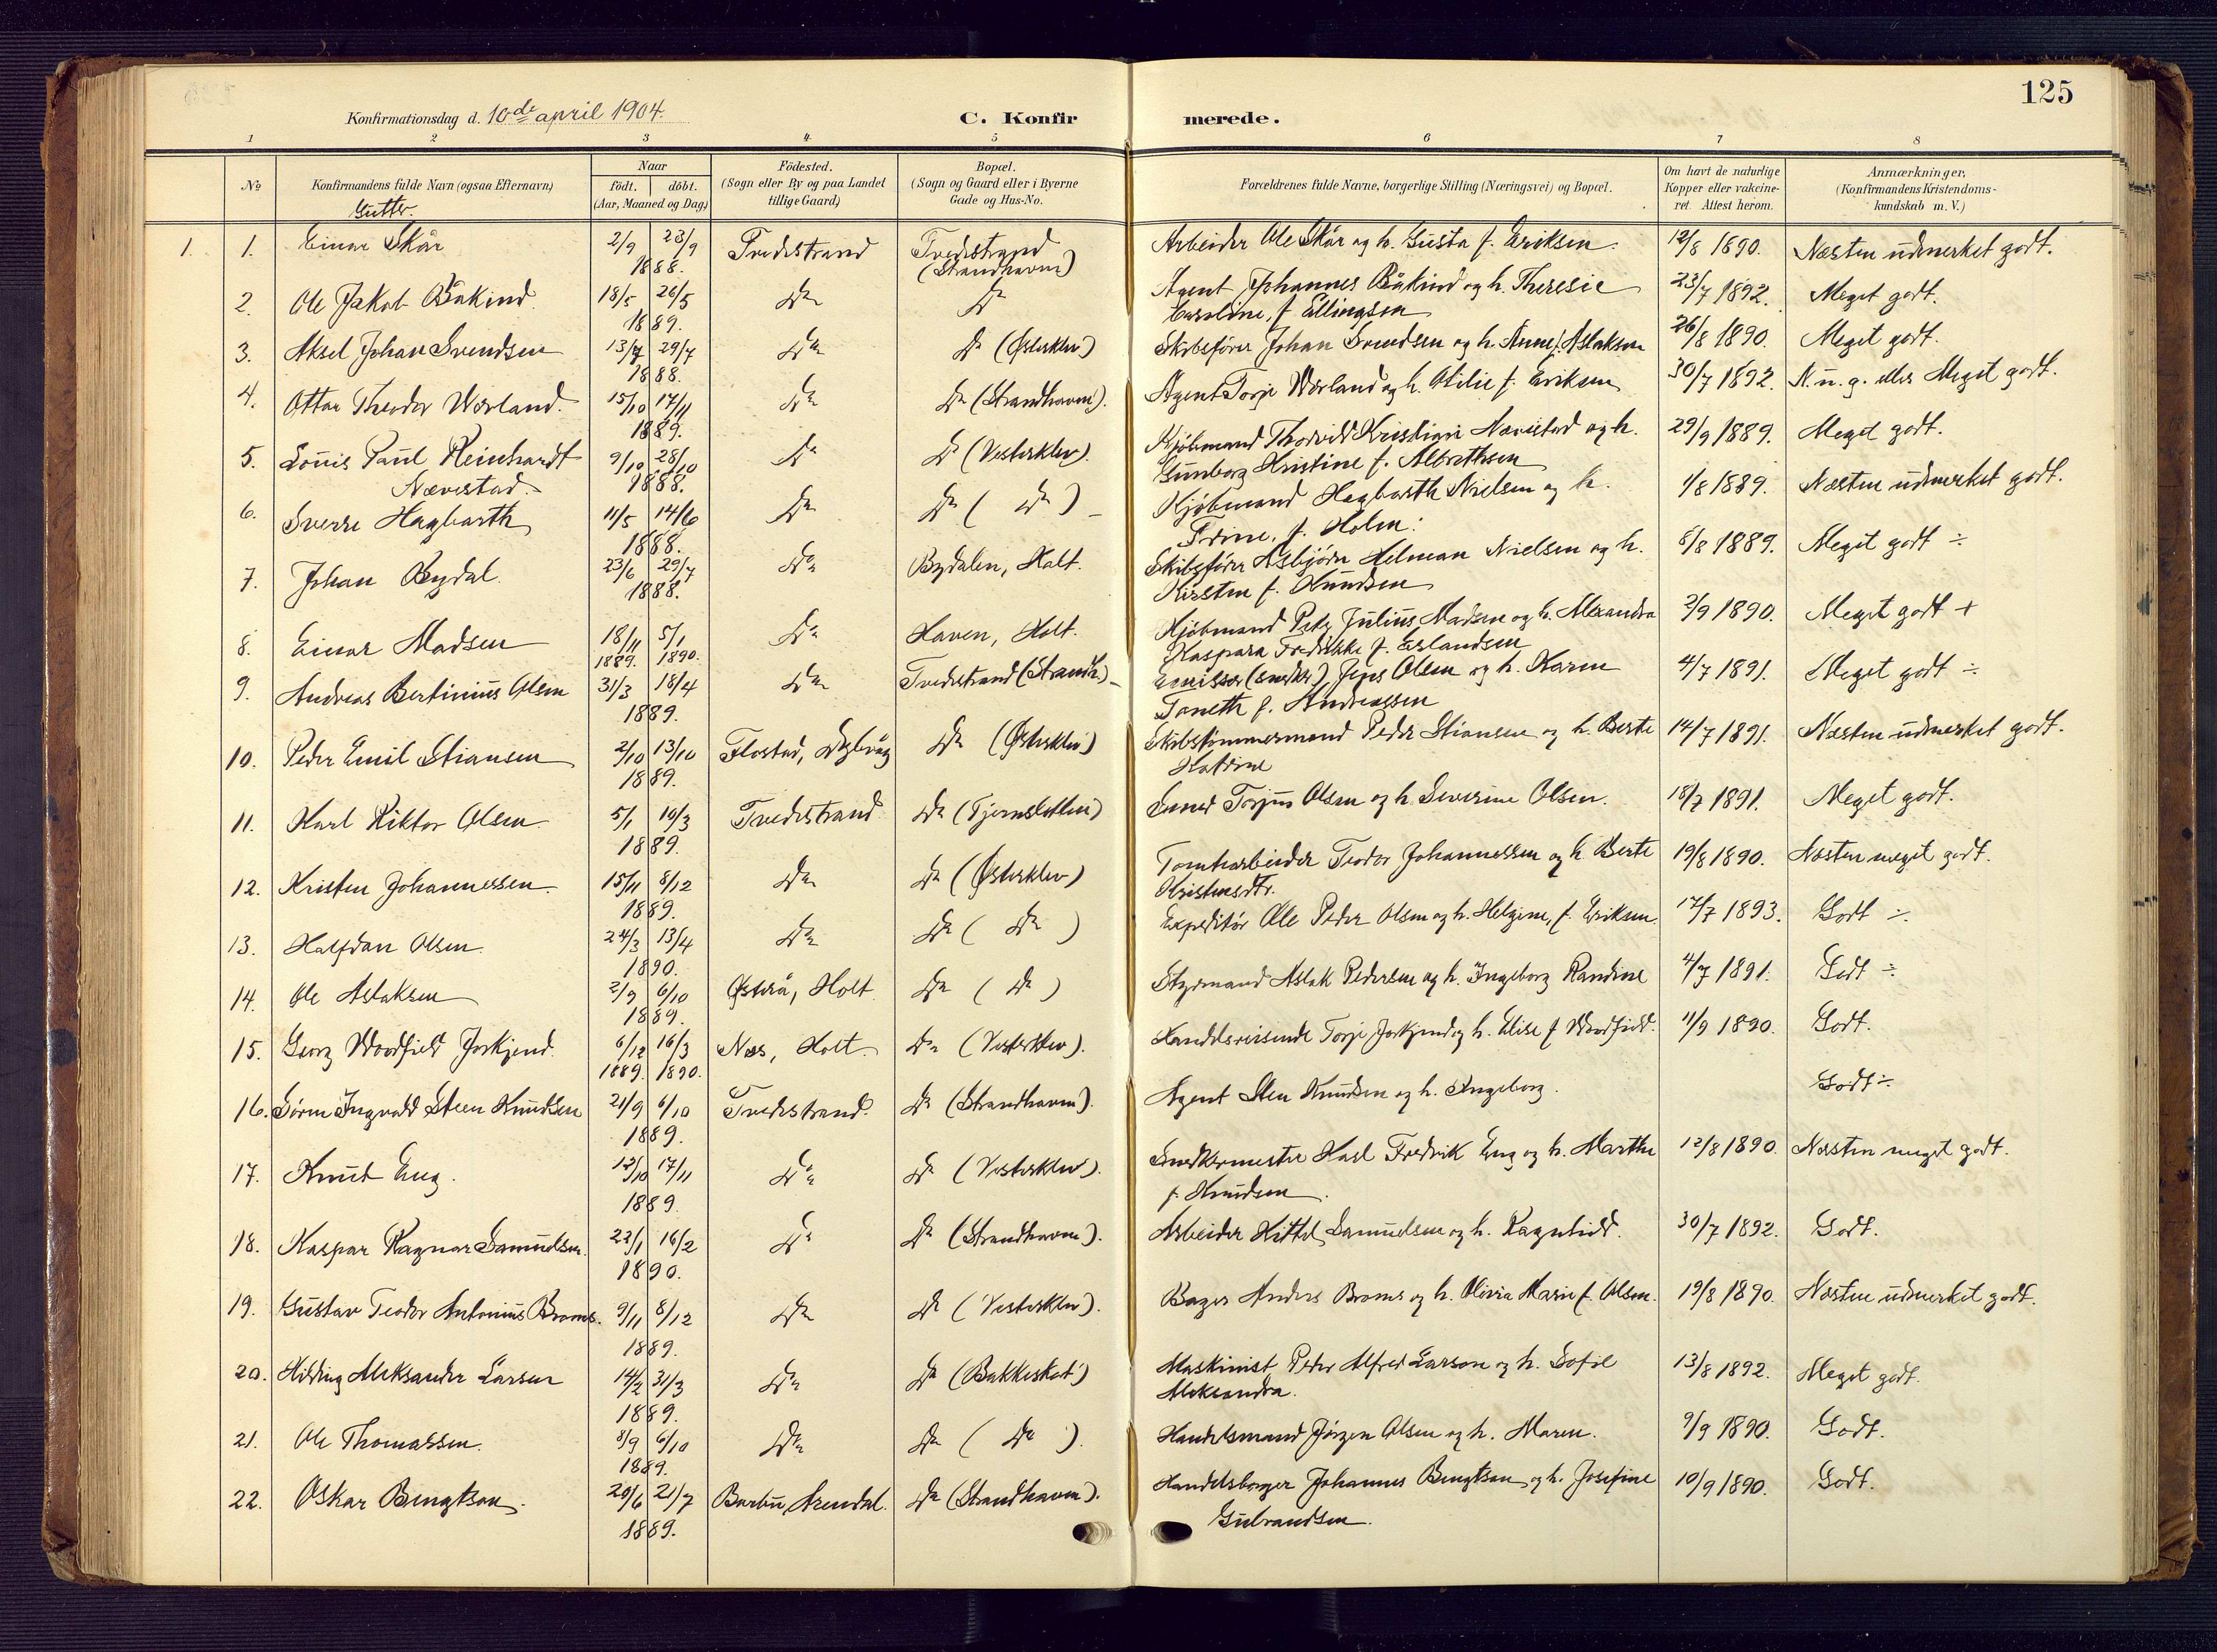 125
Konfirmationsdag d. 10de april 1904.
C. Konfirmerede.
1 2 3 4 5 6 7 8
No
Konfirmandens fulde Navn (ogsaa Efternavn)
Naar
født. døbt.
(Aar, Maaned og Dag)
Födested.
(Sogn eller By og paa Landet
tillige Gaard)
Bopæl.
(Sogn og Gaard eller i Byerne
Gade og Hus-No.
Forældrenes fulde Navne, borgerlige Stilling (Næringsvei) og Bopæl.
Om havt de naturlige
Kopper eller vakcine-
ret. Attest herom.
Anmærkninger,
(Konfirmandens Kristendoms-
kundskab m. V.)
Gutter.
1. 1. Einar Skår 2/9 23/9 1888. Tvedestrand Tvedestrand (Strandhaven) Arbeider Ole Skår og h. Gusta f. Eriksen. 12/8 1890. Næsten udmerket godt.
2. Ole Jakob Båkind 18/5 26/5 1889. Do Do Agent Johannes Båkind og h. Theresie 23/7 1892. Meget godt.
Caroline, f. Ellingsen
3. Aksel Johan Svendsen 13/7 29/7 1888. Do Do (Østerklev) Skibsfører Johan Svendsen og h. Anne f. Aslaksen 26/8 1890. Meget godt.
4. Ottar Theodor Værland. 15/10 17/11 1889. Do Do (Strandhaven). Agent Torje Værland og h. Otilie f. Eriksen 30/7 1892. N. u. g. eller Meget godt.
5. Louis Paul Reinhardt 9/10 28/10 1888. Do Do (Vesterklev). Kjøbmand Thorvald Kristian Nævestad og h. 29/9 1889. Meget godt.
Nævestad. Gunborg Kristine f. Albrethsen
6. Sverre Hagbarth 11/5 14/6 1888. Do Do ( Do ) Kjøbmand Hagbarth Nielsen og h. 1/8 1889. Næsten udmerket godt.
Trine, f. Holm.
7. Johan Bydal. 23/6 29/7 1888. Do Bydalen, Holt. Skibsfører Asbjørn Helman Nielsen og h. 8/8 1889. Meget godt ÷
Kirsten f. Knudsen
8. Einar Madsen 18/11 1889. 5/1 1890. Do Haven, Holt. Kjøbmand Peter Julius Madsen og h. Alexandra 2/9 1890. Meget godt +
Kaspara Fredrikke f. Erlandsen
9. Andreas Bertinius Olsen 31/3 18/4 1889. Do Tvedestrand (Strandh.) Emissær (snedker) Jens Olsen og h. Karen 4/7 1891. Meget godt ÷
Taneth f. Andreassen
10. Peder Emil Stiansen 2/10 13/10 1889. Flostad, Do (Østerklev) Skibstømmermand Peder Stiansen og h. Berte 14/7 1891. Næsten udmerket godt.
Katrine
11. Karl Viktor Olsen 5/1 10/3 1889. Tvedestrand Do (Tjernsletten) Smed Torjus Olsen og h. Severine Olsen. 18/7 1891. Meget godt.
12. Kristen Johannessen. 15/11 8/12 1889. Do Do (Østerklev) Tomtearbeider Teodor Johannessen og h. Berte 19/8 1890. Næsten meget godt.
Kristensdtr.
13. Halfdan Olsen. 24/3 13/4 1890. Do Do ( Do ) Expeditør Ole Peder Olsen og h. Helgine, f. Eriksen. 17/7 1893. Godt ÷
14. Ole Aslaksen 2/9 6/10 1889. Østerå, Holt. Do ( Do ) Styrmand Aslak Pedersen og h. Ingeborg Randine 4/7 1891. Godt ÷
15. Georg Woodfield Joskjend. 6/12 1889. 16/3 1890. Næs, Holt. Do (Vesterklev). Handelsreisende Torje Joskjend og h. Elise f. Woodfield. 11/9 1890. Godt.
16. Søren Ingvald Steen Knudsen 21/9 6/10 1889. Tvedestrand. Do (Strandhaven). Agent Sten Knudsen og h. Ingeborg. Godt ÷
17. Knut Eng. 12/10 17/11 1889. Do Do (Vesterklev). Snedkermester Karl Fredrik Eng og h. Marthe 12/8 1890. Næsten meget godt.
f. Knudsen.
18. Kaspar Ragnar Samuelsen. 22/1 16/2 1890. Do Do (Strandhaven). Arbeider Kittel Samuelsen og h. Ragnhild. 30/7 1892. Godt.
19. Gustav Teodor Antonius Broms. 9/11 8/12 1889. Do Do (Vesterklev). Bager Anders Broms og h. Olivia Marie f. Olsen. 19/8 1890. Næsten udmerket godt.
20. Hilding Aleksander Larsen 14/2 31/3 1889. Do Do (Bakkeskot) Maskinist Peder Alfred Larson og h. Sofie 13/8 1892. Meget godt.
Aleksandra.
21. Ole Thomassen. 8/9 6/10 1889. Do Do ( Do ). Handelsmand Jørgen Olsen og h. Maren. 9/9 1890. Godt.
22. Oskar Bengtson. 20/6 21/7 1889. Barbu, Arendal. Do (Strandhaven). Handelsborger Johannes Bengtson og h. Josefine 10/9 1890. Godt.
Gulbrandsen.